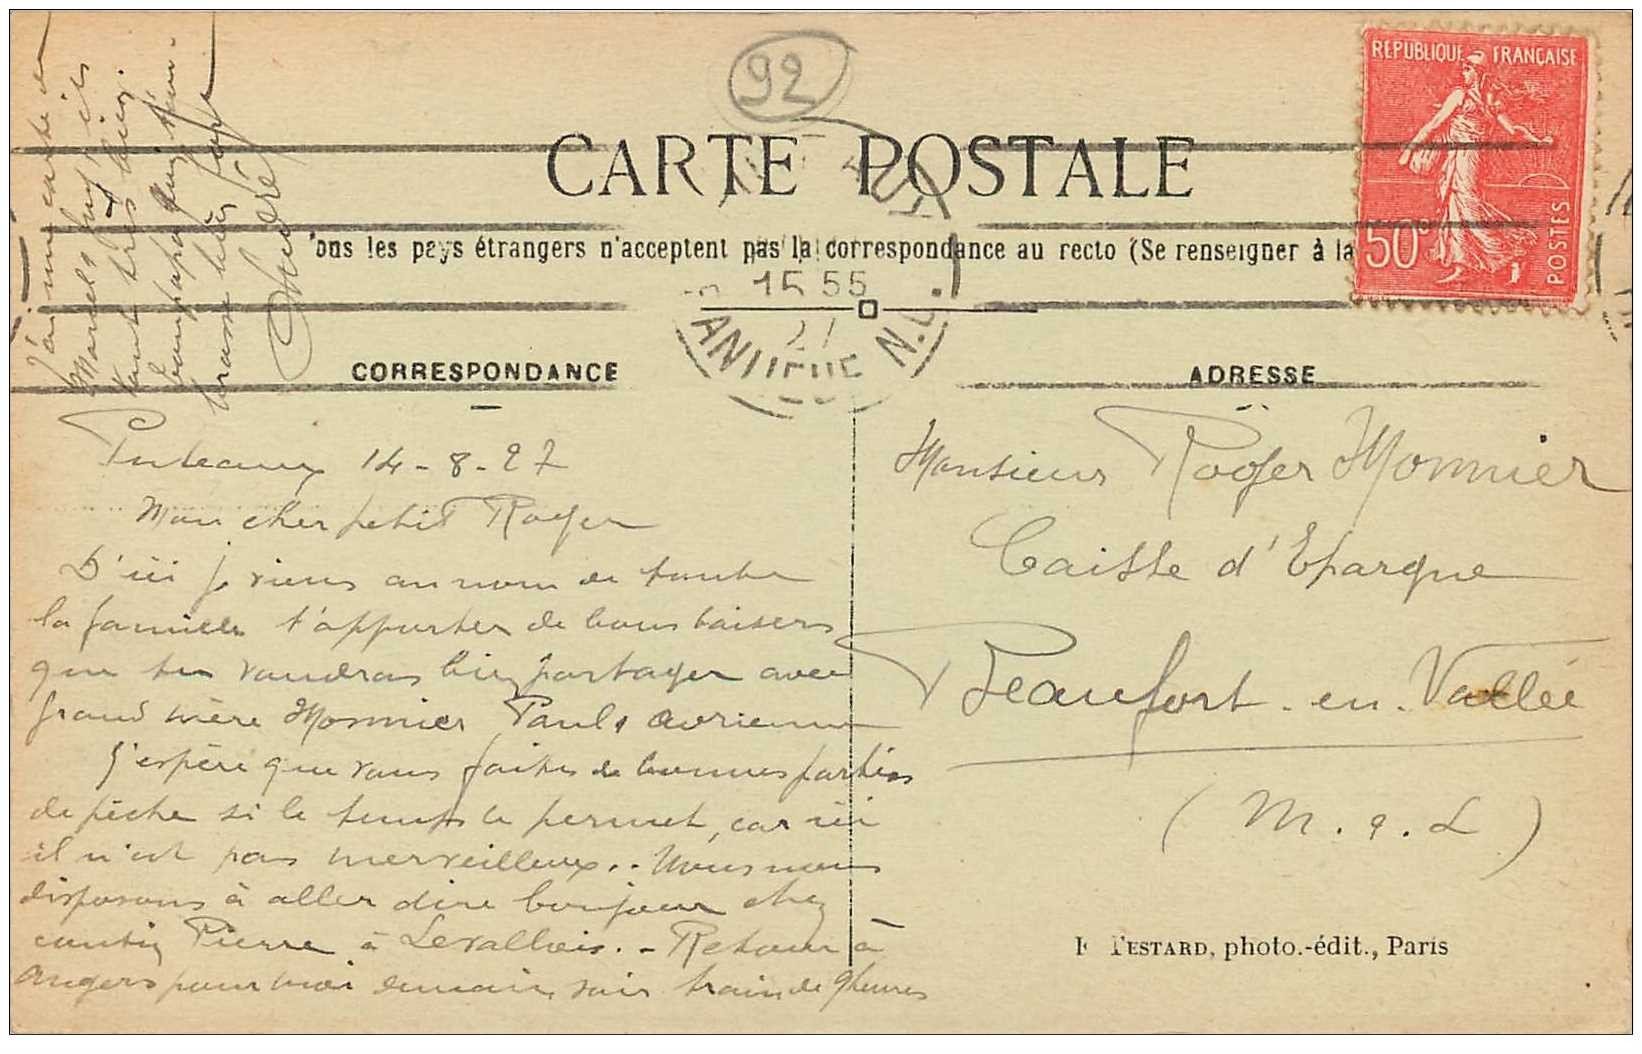 92
CARTE POSTALE
ous les pays étrangers n'acceptent pas la correspondance au recto (Se renseigner à la
REPUBLIQUE FRANÇAISE
50c
POSTES
15 55
CORRESPONDANCE
ADRESSE
Puteaux 14-8-27
Mon cher petit Roger
D'ici je viens au nom de toute
la famille t'apporter de bons baisers
que tu voudras bien partager avec
grand mère Monnier Paul
J'espère que vous faites de bonnes parties
de pêche si le temps le permet, car ici
il n'est pas merveilleux.. Nous nous
disposons à aller dire bonjour chez
cousin Pierre à Levallois. - Retour à
Angers pour moi demain soir train de 9 heures
J'ai une carte de
Marcel
vont très bien.
brasse bien fort
André
Monsieur Roger Monnier
Caisse d'Epargne
Beaufort-en-Vallée
(M. &. L)
TESTARD, photo.-édit., Paris